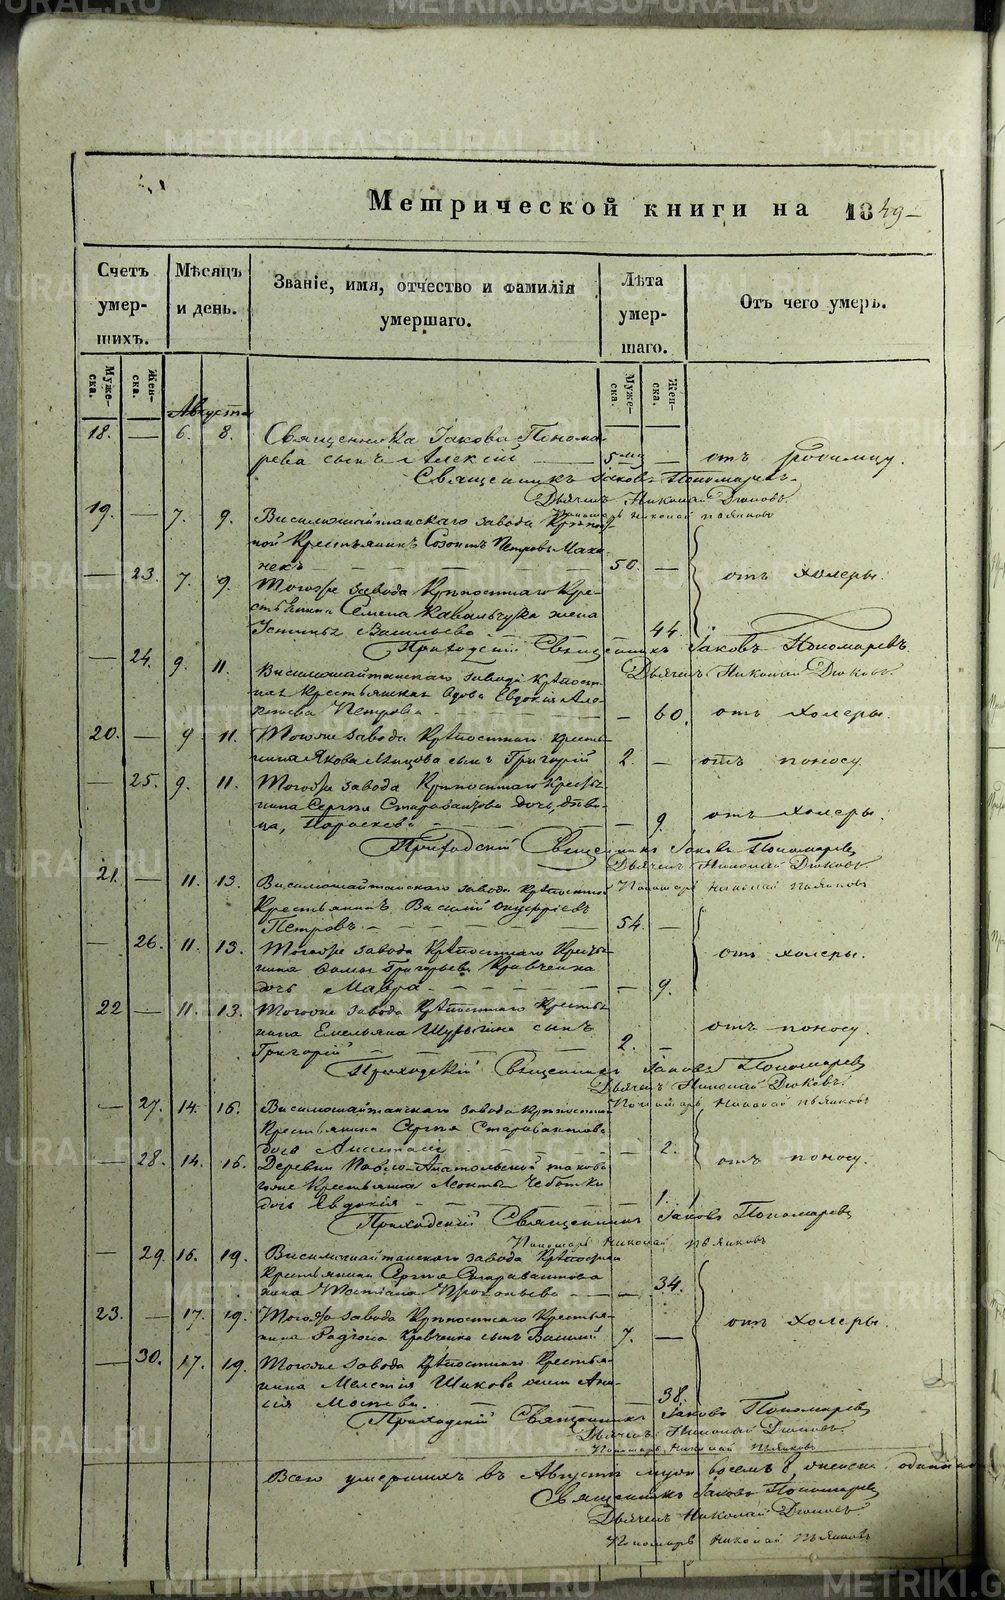 Метрической книги на 1849
Счетъ умер-шихъ.
Мѣсяцъ и день.
Званіе, имя, отчество и фамилія умершаго.
Лѣта умер-шаго.
Отъ чего умеръ.
Муже-ска.
Жен-ска.
Муже-ска.
Жен-ска.
Августа
18. — 6. 8. Священника Іакова Понома-
рева сынъ Алексій — 5 — отъ родимцу.
Священникъ Іаковъ Пономаревъ
Дьячекъ Николай Дюковъ
Пономарь Николай
19. — 7. 9. Висимошайтанскаго завода Крѣпост-
ной Крестьянинъ Созонтъ Петровъ
50. — отъ холеры.
— 23. 7. 9. Тогоже завода Крѣпостнаго Кре-
стьянина Семена жена
Устинья Васильева 44.
Приходскій Священникъ Іаковъ Пономаревъ.
Дьячекъ Николай Дюковъ
— 24. 9. 11. Висимошайтанскаго завода крѣпост-
ная Крестьянская вдова Евдокія Але-
ксѣева Петрова — 60. отъ холеры.
20. — 9 11. Тогоже завода Крѣпостнаго кресть-
янина Якова сынъ Григорій 2. — отъ поносу
— 25. 9. 11. Тогоже завода Крѣпостнаго Кресть-
янина Сергія дочь, дѣви-
ца, Параскева — 9. отъ холеры.
Приходскій Священникъ Іаковъ Пономаревъ
Дьячекъ Николай Дюковъ
Пономарь Николай
21. — 11. 13. Висимошайтанскаго завода крѣпостной
Крестьянинъ Василій Онуфріевъ
Петровъ 54. —
— 26. 11. 13. Тогоже завода Крѣпостнаго Кресть-
янина Григорьева Кравченка
дочь Мавра — 9. отъ холеры.
22 — 11. 13. Тогоже завода Крѣпостнаго Кресть-
янина Емельяна сынъ
Григорій 2. — отъ поносу
Приходскій Священникъ Іаковъ Пономаревъ
Дьячекъ Николай Дюковъ.
Пономарь Николай
— 27. 14. 16. Висимошайтанскаго завода крѣпостнаго
Крестьянина Сергія
дочь Анастасія — 2.
— 28. 14. 16. Деревни Павло-Анатольской
Крестьянина Леонтья
дочь Евдокія — 1. отъ поносу.
Приходскій Священникъ Іаковъ Пономаревъ
Пономарь Николай
— 29. 16. 19. Висимошайтанскаго завода Крѣпостнаго
Крестьянина Сергія
жена Татіана Прокопьева — 34.
23. — 17. 19. Тогоже завода Крѣпостнаго Кресть-
янина Кравченка сынъ Василій 7. — отъ холеры.
— 30. 17. 19. Тогоже завода Крѣпостнаго Кресть-
янина жена
38.
Приходскій Священникъ Іаковъ Пономаревъ
Дьячекъ Николай Дюковъ
Пономарь Николай
Всего умершихъ въ Августѣ муж восемъ 8, женска
Священникъ Іаковъ Пономаревъ
Дьячекъ Николай Дюковъ
Пономарь Николай
METRIKI.GASO-URAL.RU